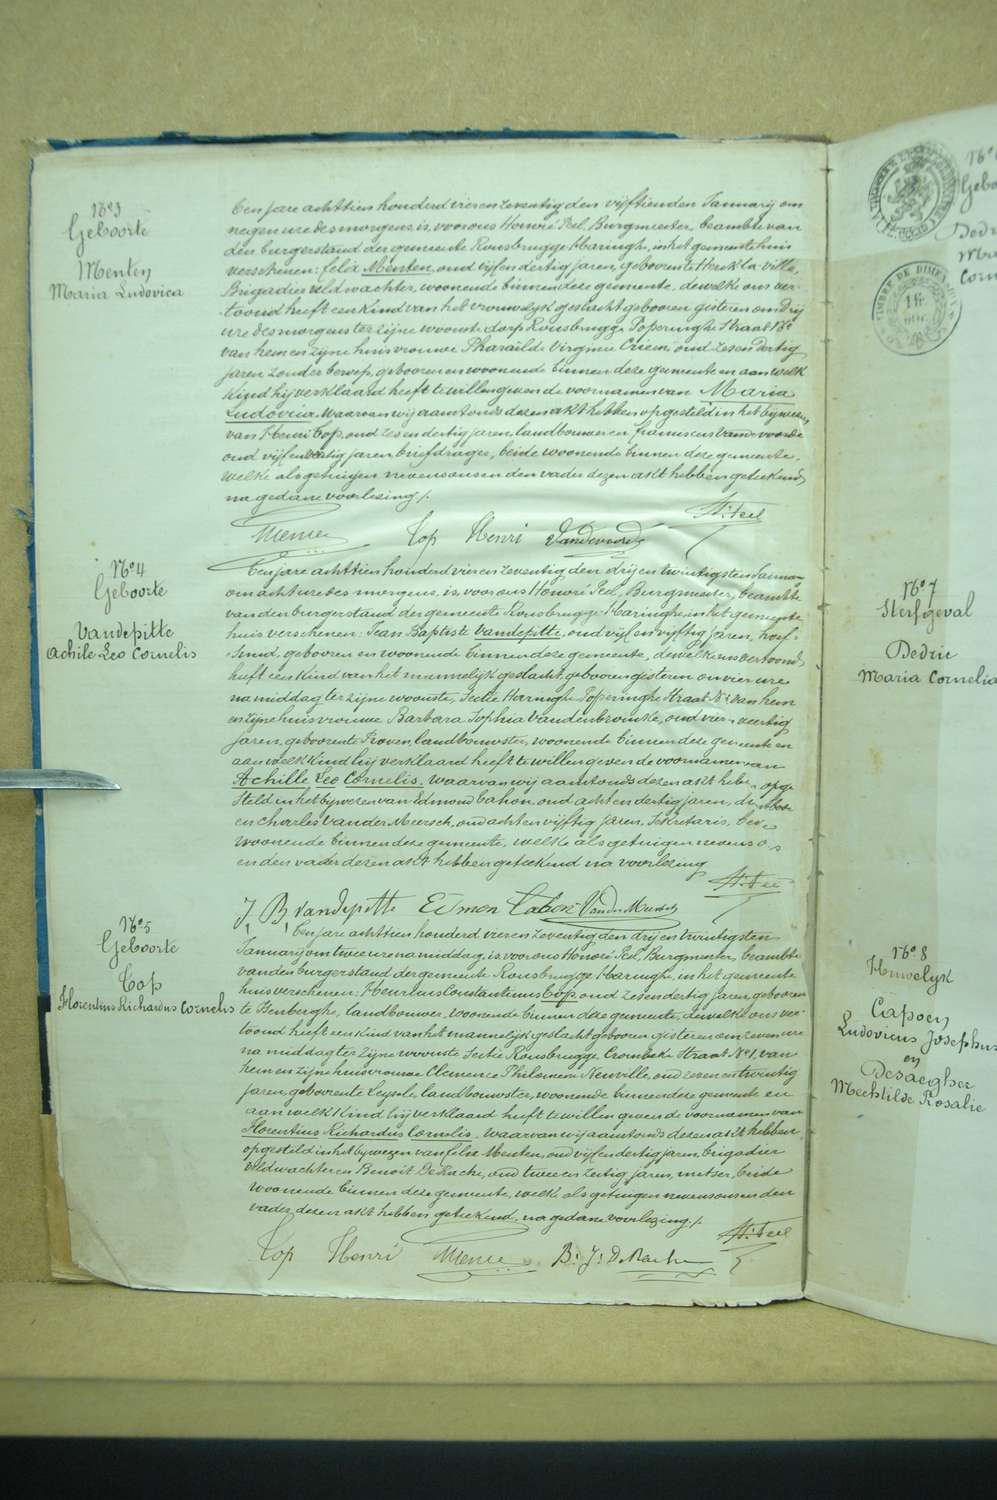 N° 3
Geboorte
Menten
Maria Ludovica
Een jare achttien honderd vier en zeventig den vijftienden Januarij om
negen ure des morgens, is voor ons Honoré Peel, Burgmeester, beambte van
den burgerstand der gemeente Rousbrugge Haringhe, in het gemeentehuis
verschenen: felix Menten, oud vijf en dertig jaren, geboren te Herck la ville,
Brigadier veldwachter, woonende binnen deze gemeente, dewelke ons ver-
toond heeft een kind van het vrouwelijk geslacht geboren gisteren om drij
ure des morgens ter zijne woonste dorp Rousbrugge Poperinghe Straat N°
van hem en zijne huisvrouwe Pharaïlde Virginie oud zes en dertig
jaren zonder beroep, geboren en woonende binnen deze gemeente en aan welk
kind hij verklaard heeft te willen geven de voornamen van Maria
Ludovica. Waarvan wij aanstonds dezen akt hebben opgesteld in het bijwezen
van Henri Top, oud zes en dertig jaren, landbouwer en franciscus Vandevoorde
oud vijf en jaren, briefdrager, beide woonende binnen deze gemeente,
welke als getuigen nevens ons en den vader dezen akt hebben geteekend
na gedane voorlezing ./.
H. Peel
Menten Top Henri Vandevoorde
N° 4
Geboorte
Vandepitte
Achile Leo Cornelis
Een jare achttien honderd vier en zeventig den drij en twintigsten Januarij
om acht ure des morgens, is voor ons Honoré Peel, Burgmeester, beambte
van den burgerstand der gemeente Rousbrugge-Haringhe in het gemeente
huis verschenen: Jean Baptiste Vandepitte, oud vijf en vijftig jaren, hoef-
smid, geboren en woonende binnen deze gemeente, dewelke ons vertoond
heeft een kind van het mannelijk geslacht, geboren gisteren om vier ure
na middag ter zijne woonste, Sectie Haringhe Poperinghe Straat N° van hem
en zijne huisvrouwe Barbara Sophia Vandenbroucke, oud vier en veertig
jaren, geboren te Proven, landbouwster, woonende binnen deze gemeente en
aan welk kind hij verklaard heeft te willen geven de voornamen van
Achille Leo Cornelis. Waarvan wij aanstonds dezen akt hebben opge-
steld in het bijwezen van Edmond Cahon, oud acht en dertig jaren,
en Charles Vander Meersch, oud acht en vijftig jaren, Sekretaris, beide
woonende binnen deze gemeente, welke als getuigen nevens ons
en den vader dezen akt hebben geteekend na voorlezing
H. Peel
J. B. Vandepitte Edmon Cahon VanderMeersch
N° 5
Geboorte
Top
Florentius Richardus Cornelis
Een jare achttien honderd vier en zeventig den drij en twintigsten
Januarij om twee ure na middag, is voor ons Honoré Peel, Burgmeester, beambte
van den burgerstand der gemeente Rousbrugge Haringhe, in het gemeente
huis verschenen: Henricus Constantinus Top, oud zes en dertig jaren, geboren
te Isenberghe, landbouwer, woonende binnen deze gemeente, dewelke ons ver-
toond heeft een kind van het mannelijk geslacht geboren gisteren om zeven ure
na middag ter zijne woonste Sectie Rousbrugge Crombeke Straat N° 1, van
hem en zijne huisvrouwe Clemence Philomene Neuville, oud zeven en twintig
jaren, geboren te Leysele, landbouwster, woonende binnen deze gemeente en
aan welk kind hij verklaard heeft te willen geven de voornamen van
Florentius Richardus Cornelis. Waarvan wij aanstonds dezen akt hebben
opgesteld in het bijwezen van felix Menten, oud vijf en dertig jaren, brigadier
veldwachter en Benoit De Rache, oud twee en zestig jaren, metser, beide
woonende binnen deze gemeente, welke als getuigen nevens ons en den
vader dezen akt hebben geteekend, na gedane voorlezing ./.
H. Peel
Top Henri Menten B. J. De Rache
N° 6
Gebo
Dedri
Mar
Corn
TIMBRE DE DIMENSION
N° 7
Sterfgeval
Dedrie
Maria Cornelia
N° 8
Huwelijk
Capoen
Ludovicus Josephus
en
Desaegher
Mechtilde Rosalie